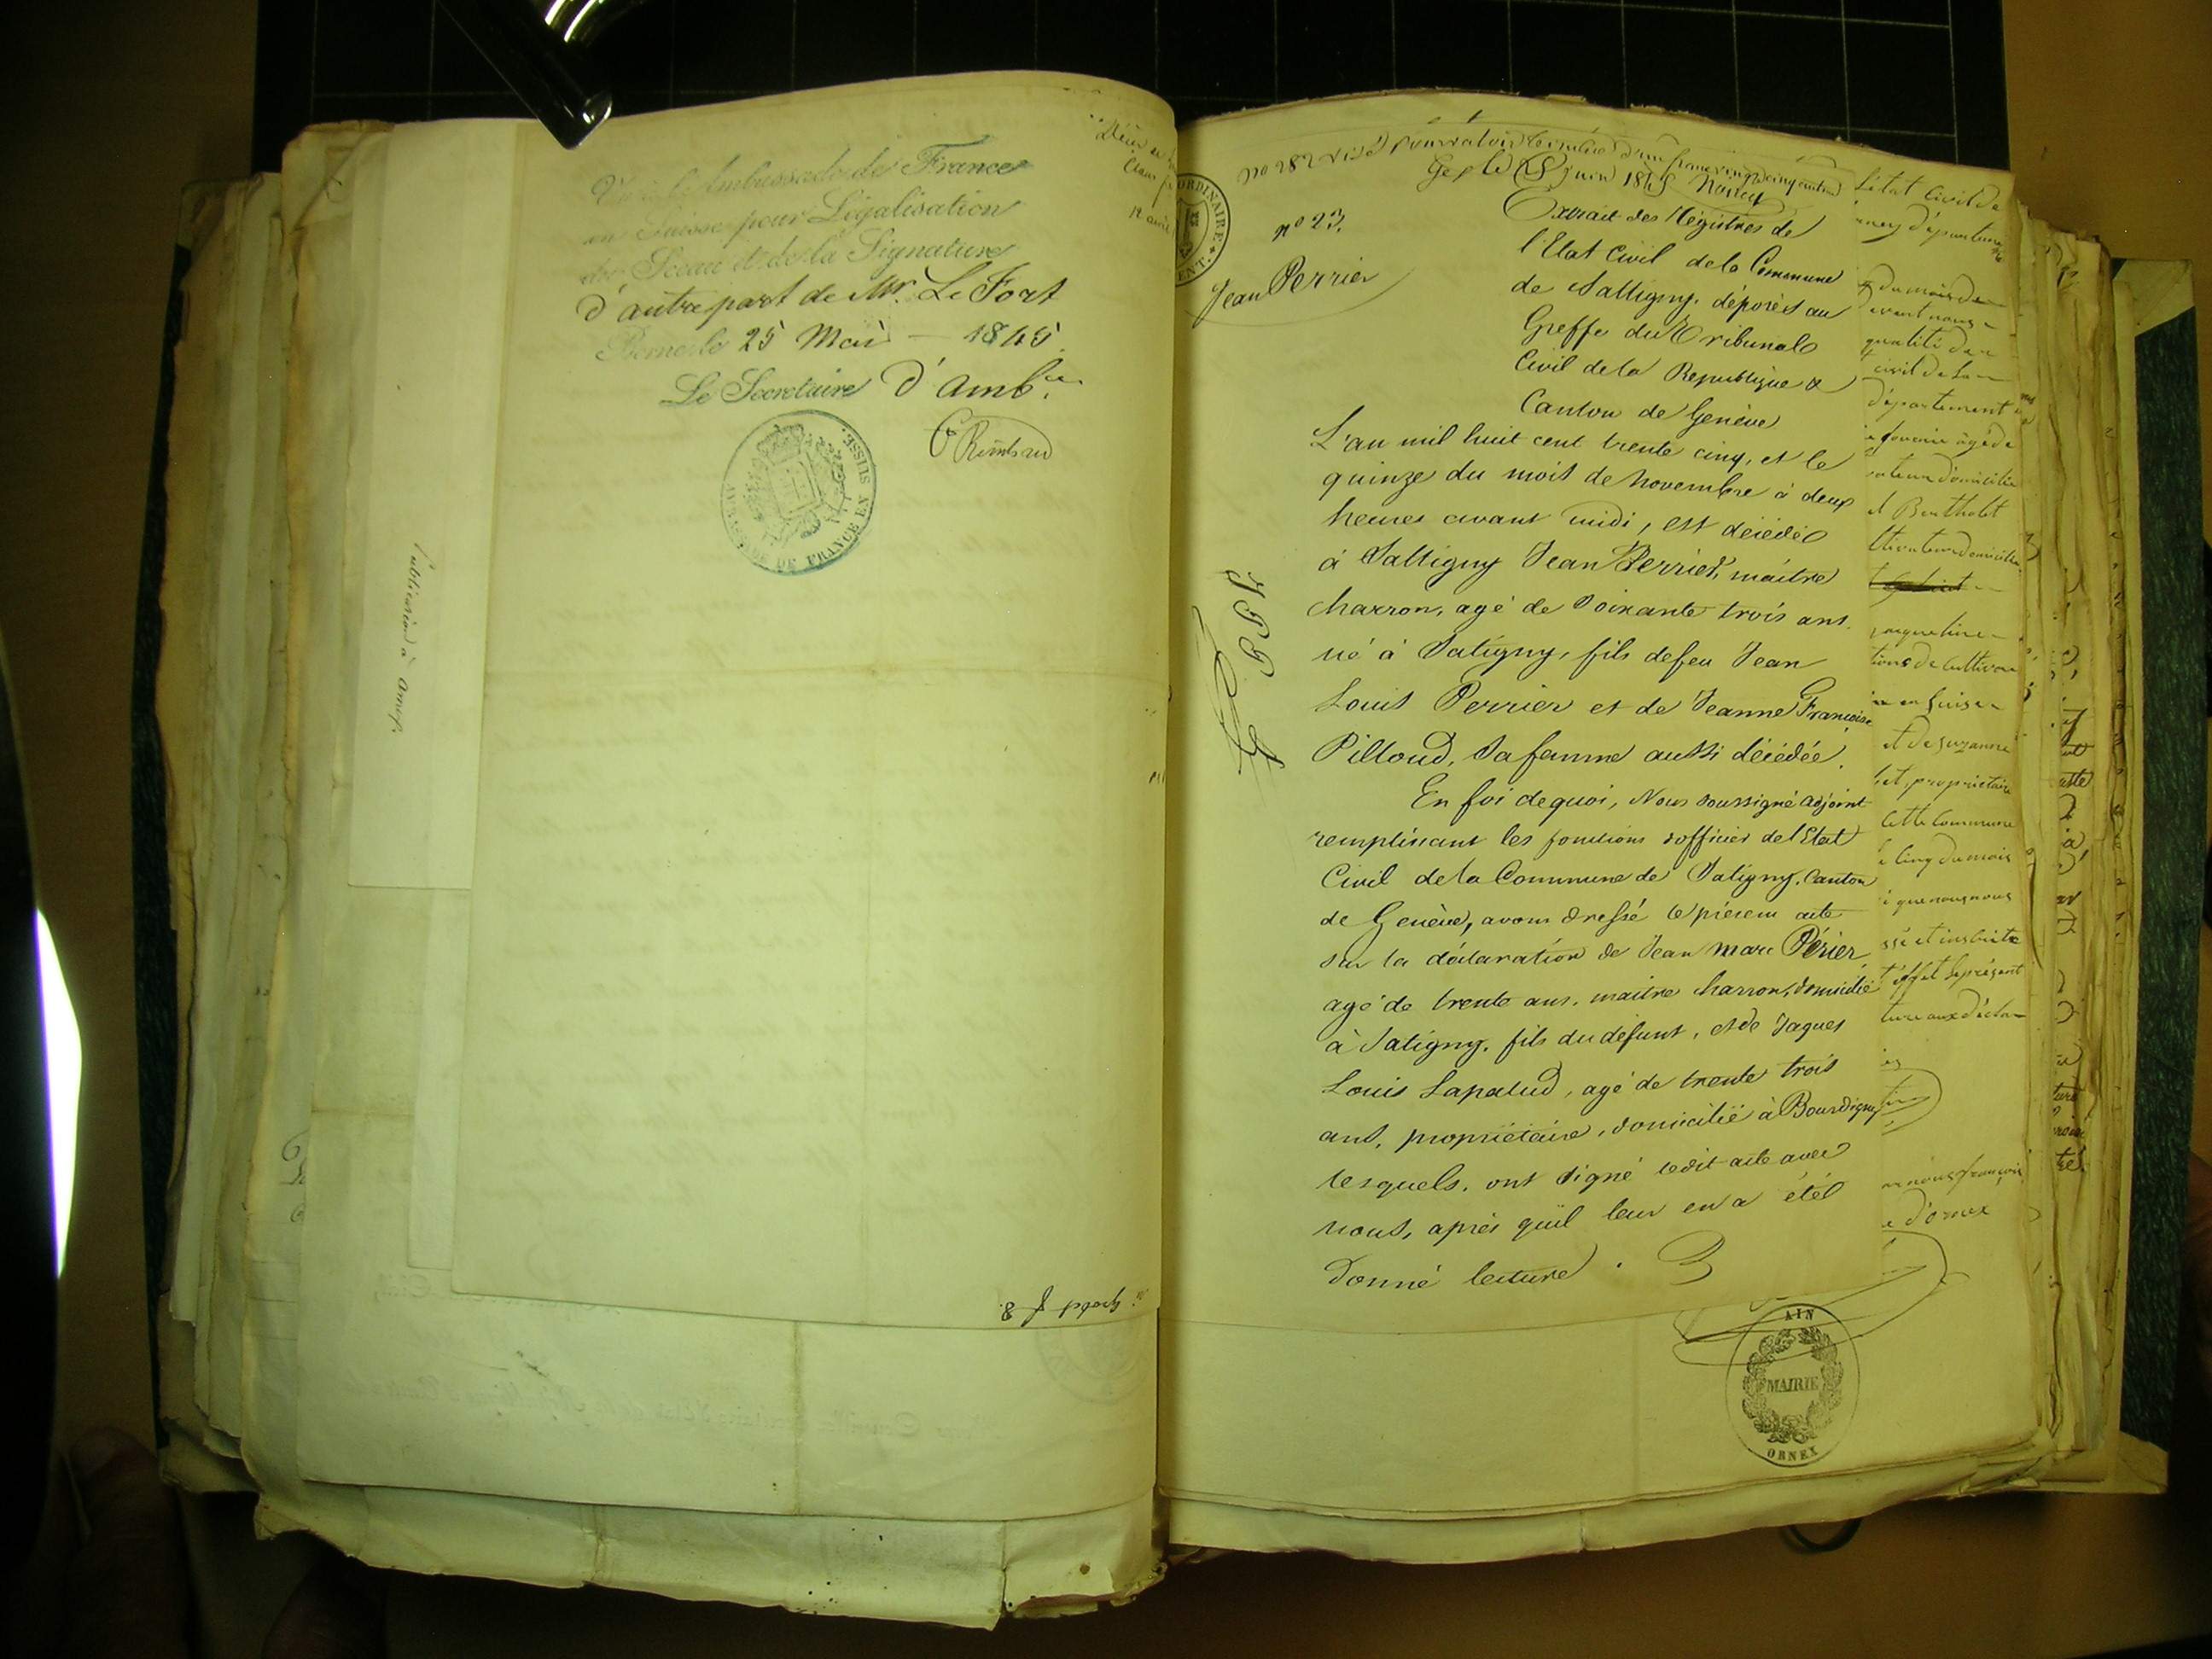 Vu à l'Ambassade de France
en Suisse pour Légalisation
du Sceau et de la Signature
d'autre part de Mr. Le Fort
Berne le 25 Mai — 1845.
Le Secretaire d'Amb.
AMBASSADE DE FRANCE EN SUISSE.
Publication à
no 282 visé pour valoir timbre d'un franc vingt cinq centimes
Gex le 18 juin 1845
no 23.
Jean Perrier
Extrait des Régistres de
l'Etat Civil de la Commune
de Sattigny, déposés au
Greffe du Tribunal
Civil de la Republique &
Canton de Genève
L'an mil huit cent trente cinq, et le
quinze du mois de Novembre à deux
heures avant midi, est décédé
à Sattigny Jean Perrier, maitre
charron, agé de Soixante trois ans.
né à Satigny, fils de feu Jean
Louis Perrier et de Jeanne Françoise
Pilloud, Sa femme aussi décédée.
En foi de quoi, Nous soussigné adjoint
remplissant les fonctions d'officier de l'Etat
Civil de la Commune de Satigny, Canton
de Genève, avons dressé le présent acte
sur la déclaration de Jean Marc Périer
agé de trente ans, maitre charron, domicilié
à Satigny, fils du défunt, et de Jaques
Louis Lapalud, agé de trente trois
ans, propriétaire, domicilié à Bourdigny
lesquels, ont signé ledit acte avec
nous, après qu'il leur en a été
Donné lecture.
l'état Civil de
du mois de
devant nous
qualité de
civil de la
département
âgé de
domicilié
Bertholet
Jaqueline
de cultivat
en Suisse
et de Suzanne
propriétaire
cette Commune
cinq du mois
que nous nous
et inscrite
effet le présent
ture aux décla
nous françois
d'ornex
AIN
MAIRIE
ORNEX